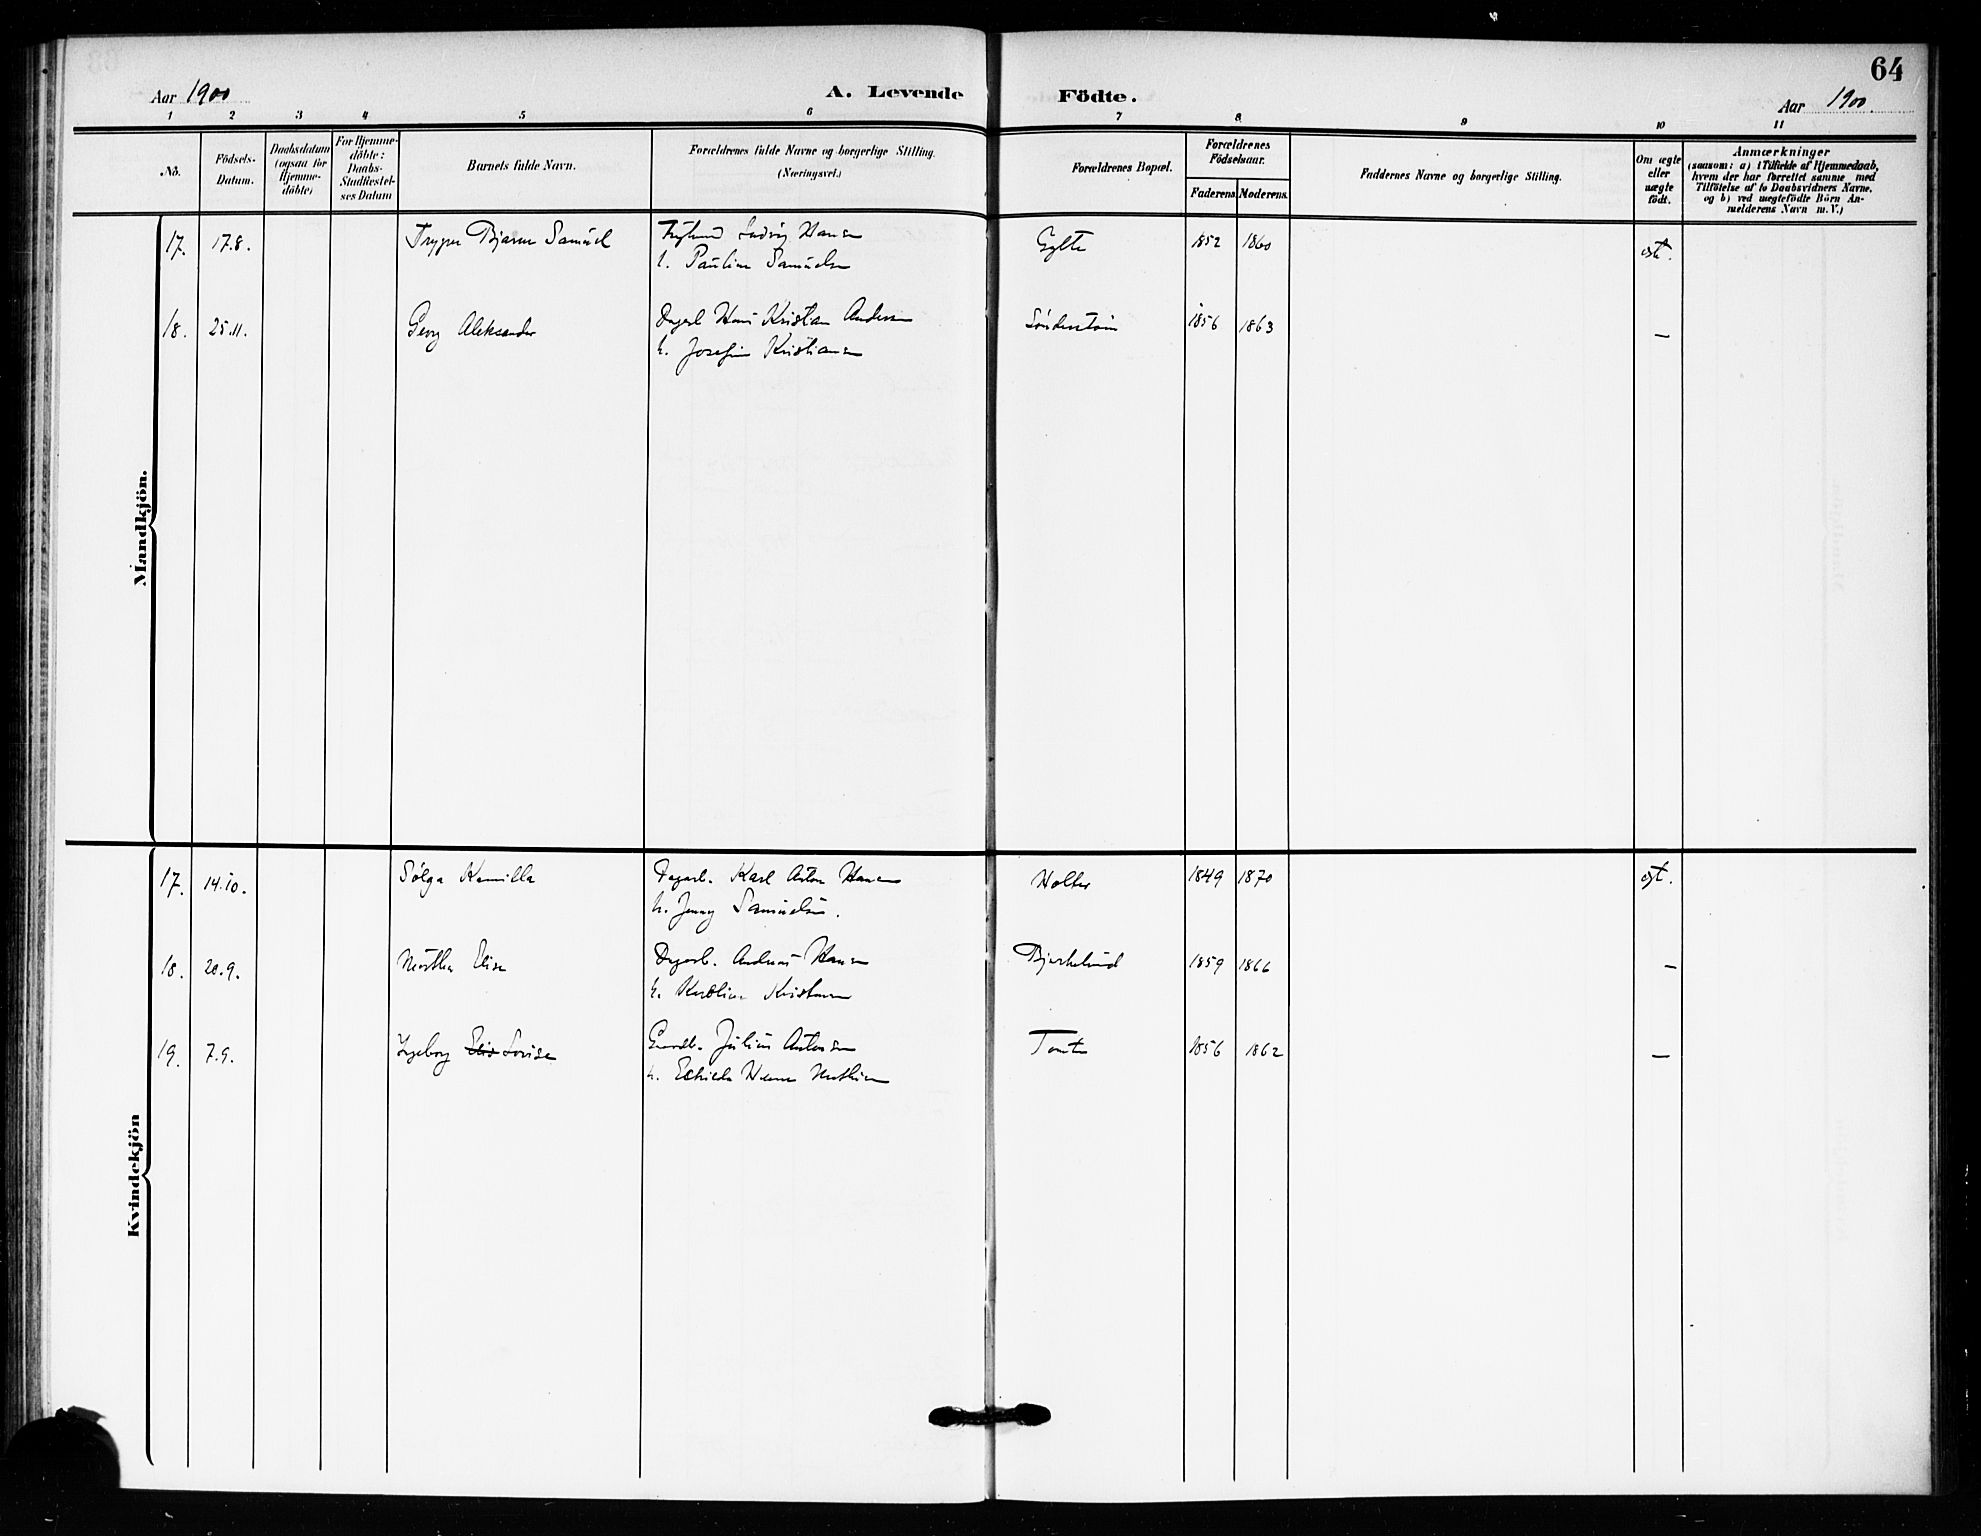 64
Aar 1900
A. Levende Födte.
Aar 1900
1 2 3 4 5 6 7 8 9 10 11
No.
Födsels-
Datum.
Daabsdatum
(ogsaa for
Hjemme-
döbte)
For Hjemme-
döbte:
Daabs-
Stadfestel-
ses Datum
Barnets fulde Navn.
Forældrenes fulde Navne og borgerlige Stilling.
(Næringsvei.)
Forældrenes Bopæl.
Forældrenes
Födselsaar.
Faderens Moderens.
Faddernes Navne og borgerlige Stilling.
Om ægte
eller
uægte
födt.
Anmærkninger
(saasom: a) i Tilfælde af Hjemmedaab,
hvem der har forrettet samme med
Tilföielse af to Daabsvidners Navne,
og b) ved uægtefödte Börn An-
melderens Navn m. V.)
Mandkjön.
17. 17.8. Trygve Bjarne Samuel Ludvig Hansen 1852 1860 egt.
h. Pauline Samuelsen
18. 25.11. Georg Aleksander Dagarb. Hans Kristian Andersen 1856 1863 —
h. Josefine Kristiansen
Kvindekjön
17. 14.10. Sólga Kamilla Dagarb. Karl Anton Hansen Holter 1849 1870 egt.
h. Jenny Samuelsen.
18. 20.9. Marthe Elise Dagarb. Andreas Hansen Bjerkelund 1859 1866 —
h. Karoline Kristiansen
19. 7.9. Ingeborg Elis Lovise Gaardb. Julius Antonsen Tomter 1856 1862 —
h.